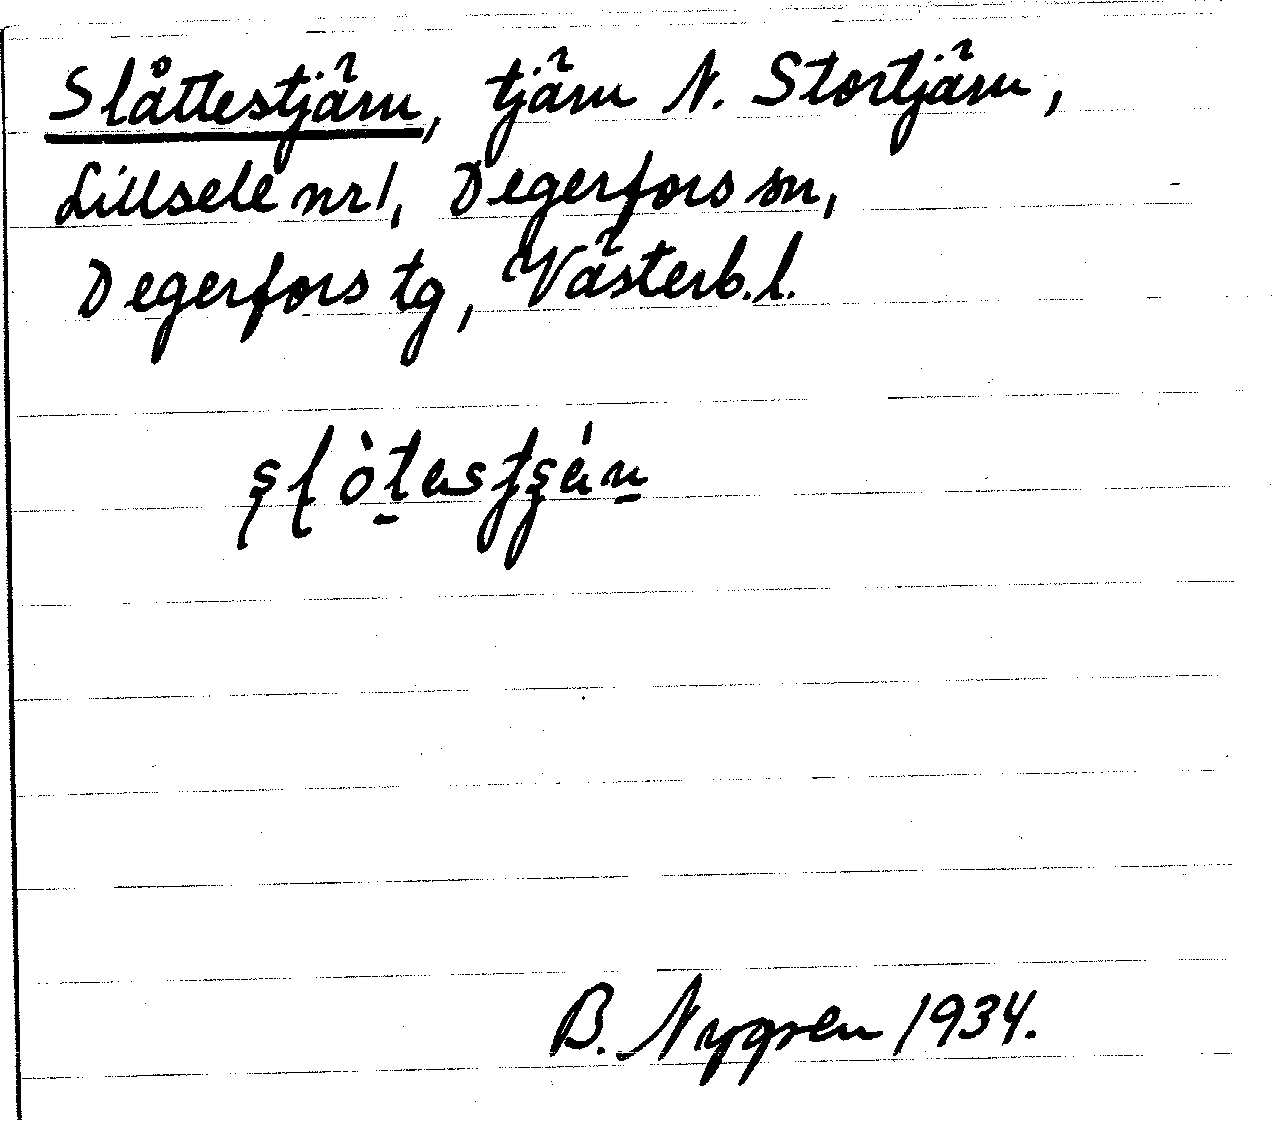 Slåttestjärn, tjärn N. Stortjärn,
Lillsele nr 1, Degerfors sn,
Degerfors tg, Västerb. l.
B. Nygren 1934.